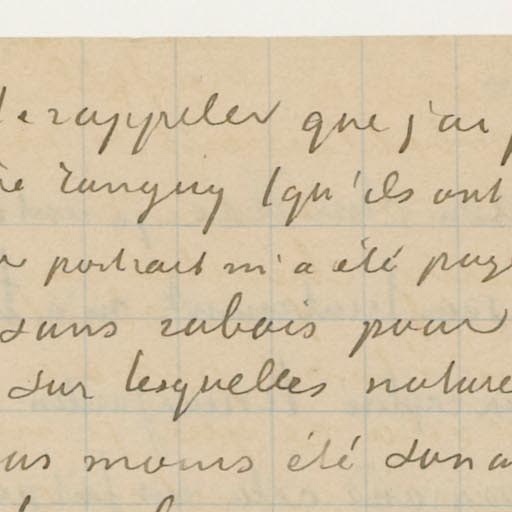 rappeler que j'ai
Tanguy (qu'ils ont
portrait m'a été pay
sans rabais pour
sur lesquelles nature
moins été sans